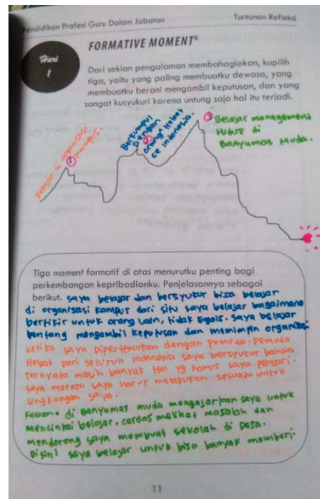 Pendidikan Profesi Guru Dalam Jabatan
Tuntunan Refleksi
Hari
1
FORMATIVE MOMENT
Dari sekian pengalaman membahagiakan, kupilih
tiga, yaitu yang paling membuatku dewasa, yang
membuatku berani mengambil keputusan, dan yang
sangat kusyukuri karena untung saja hal itu terjadi.
Belajar di organisasi
kampus.
1
Bersyukur
Dengan
orang² Hebat
se Indonesia.
2
3 Belajar management
Hidup di
Banyumas Muda.
Tiga moment formatif di atas menurutku penting bagi
perkembangan kepribadianku. Penjelasannya sebagai
berikut. saya belajar dan bersyukur bisa belajar
di organisasi kampus dari situ saya belajar bagaimana
berfikir untuk orang lain, tidak Egois. saya belajar
tentang mengambil keputusan dan memimpin organisasi
ketika saya dipertemukan dengan pemuda-pemuda
Hebat dari seluruh Indonesia saya bersyukur bahwa
ternyata masih banyak hal yg harus saya pelajari.
saya merasa saya harus melakukan sesuatu untuk
lingkungan saya.
di Banyumas muda mengajarkan saya untuk
mencintai belajar, cerdas melihat masalah dan
mendorong saya membuat sekolah di Desa.
Disini saya belajar untuk bisa banyak memberi.
11